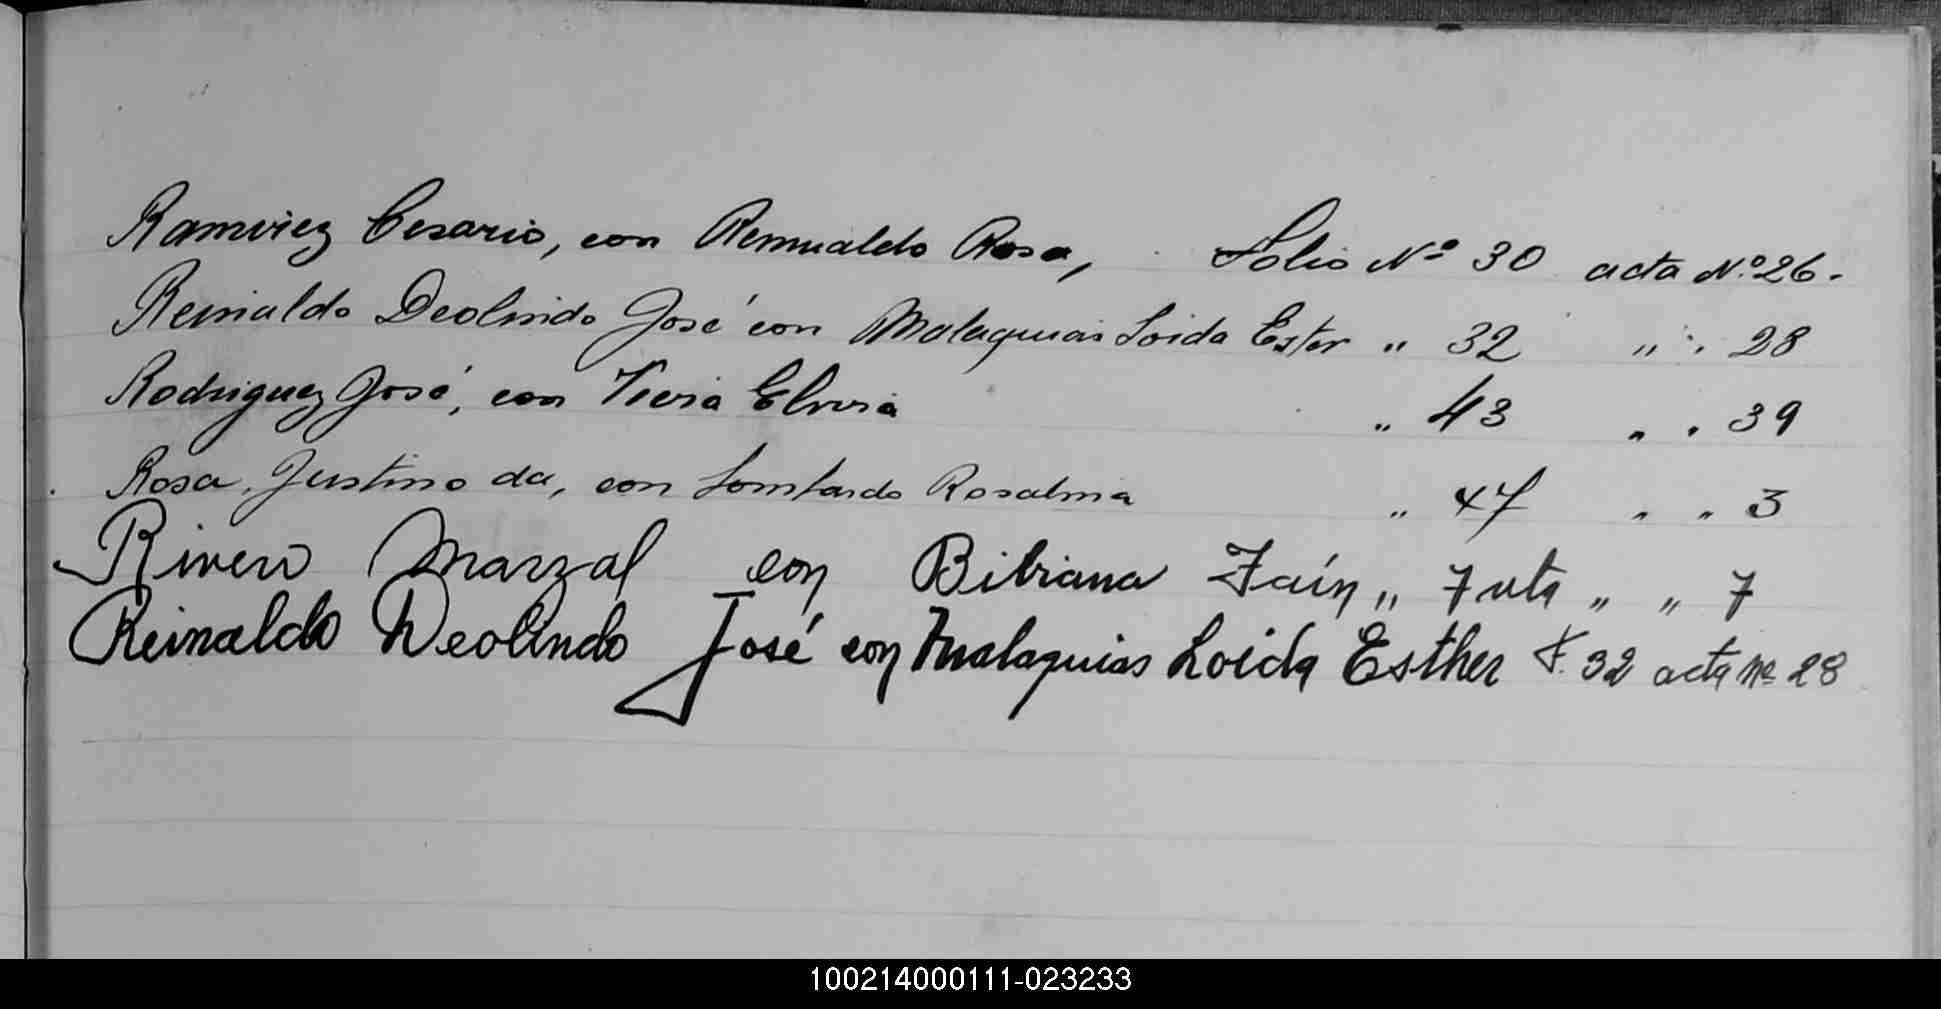 Ramirez Cesario, con Remualdo Rosa, Folio Nº 30 acta Nº 26.
Reinaldo Deolindo José con Malaquias Loida Ester " 32 " " 28
Rodriguez José, con Viera Elvira " 43 " " 39
Rosa, Justino da, con Lombardo Rosalina " 47 " " 3
Rivero Marzal con Bibiana Jaín " 7 vta " " 7
Reinaldo Deolindo José con Malaquias Loida Esther F. 32 acta Nº 28
100214000111-023233